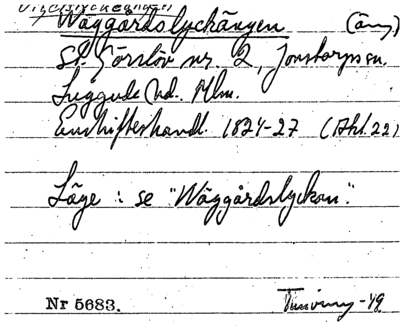 Wäggårdslyckängen (äng)
St. Görslöv nr. 2, Jonstorps sn.
Luggude hd. Mlm.
Enskifteshandl. 1824-27 (Akt.22)
Läge : se "Wäggårdslyckan".
Nr 5683.
-49